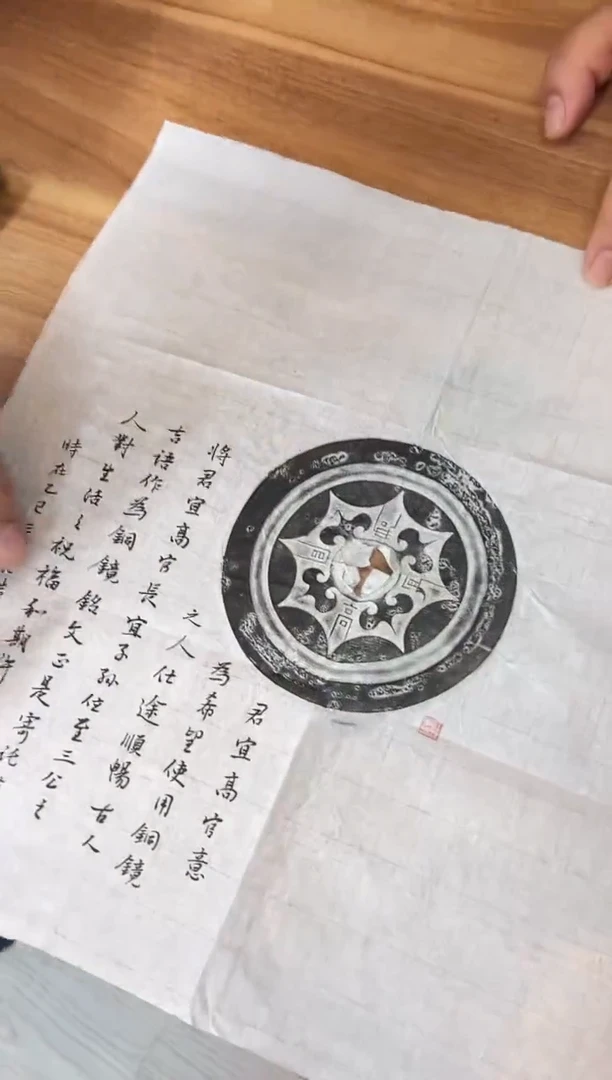 君宜高官意
為希望使用銅鏡
之人仕途順暢古人
將君宜高官長宜子孫位至三公之
吉語作為銅鏡銘文正是寄託
人對生活之祝福和期許
時在乙巳
宜
高
官